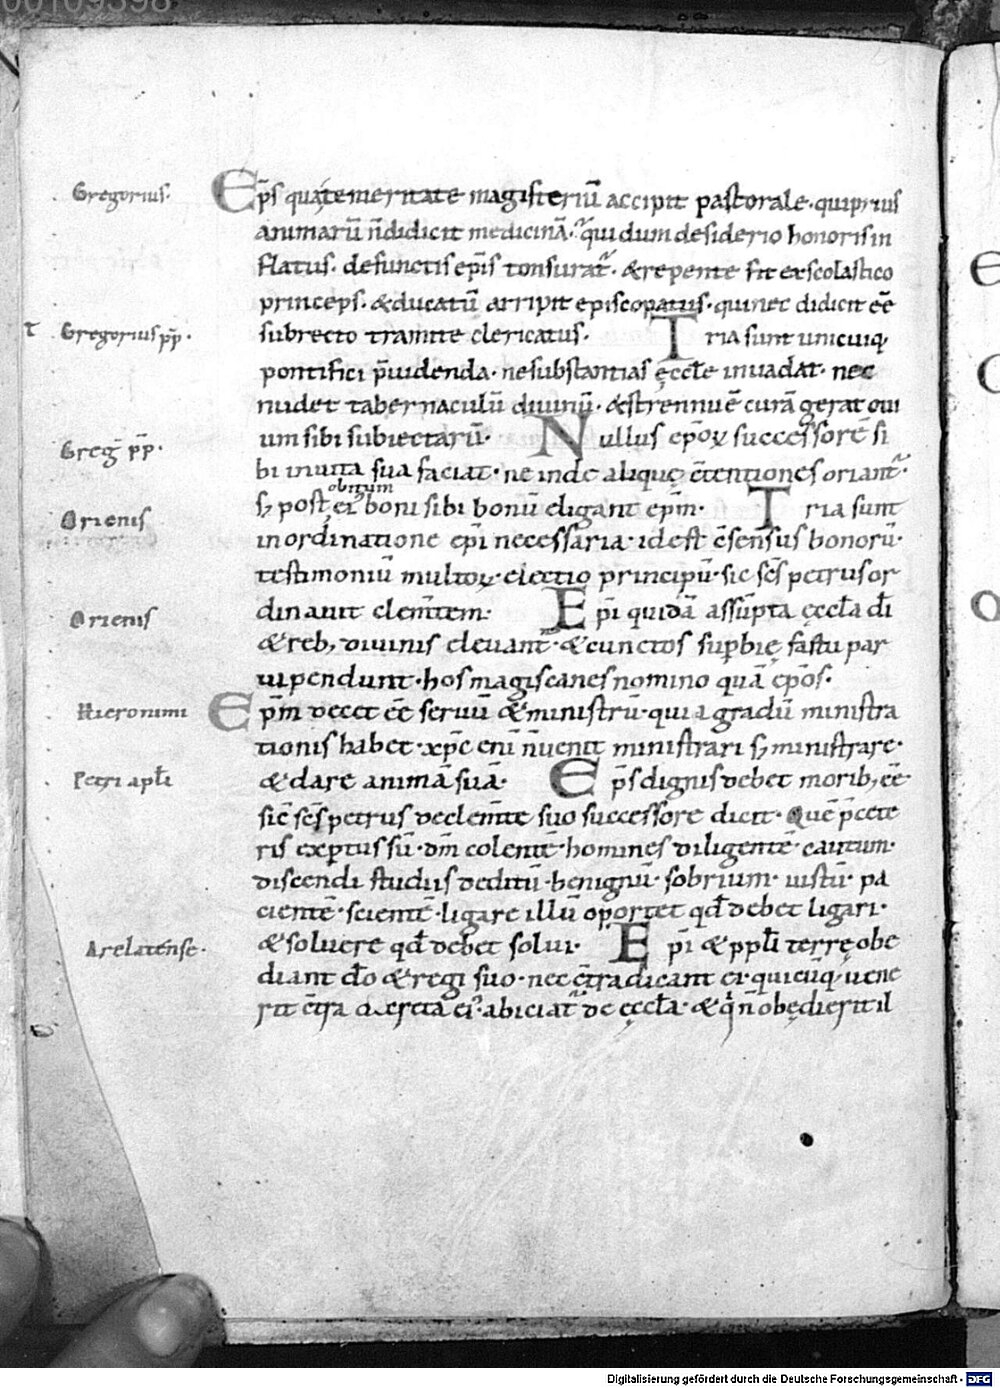 00109398
Gregorius.
Ep̄s quatemeritate magisteriū accipit pastorale· quiprius
animarū n̄didicit medicinā· qui dum desiderio honorisin
flatus· defunctis ep̄is tonsurat̃· &repente fit exscolastico
princeps· &ducatū arripit episcopatus· quinec didicit eē
t Gregorius pp̄.
subrecto tramite clericatus· Tria sunt unicuiq;
pontifici p̄uidenda· nesubstantias ęccłe inuadat· nec
nudet tabernaculū diuinū· &strennuē curā gerat oui
Greḡ pp̄.
um sibi subiectarū· Nullus ep̄oꝝ successorē si
bi inuita sua faciat· ne inde aliquę c̄tentiones oriant̃·
obitum
s; post ei' boni sibi bonū eligant ep̄m· Tria sunt
Orienis
inordinatione ep̄i necessaria· idest c̄sensus bonorū·
testimoniū multoꝝ· electio principū· sic sc̄s petrus or
Orienis
dinauit clem̄tem· Ep̄i quidā assūpta ęccła dī
&reb; diuinis eleuant̃· &cunctos sup̄bię fastu par
uipendunt· hos magis canes nomino quā ep̄os·
Hieronimi
Ep̄m decet eē seruū &ministrū· quia gradū ministra
tionis habet· xp̄c eni n̄uenit ministrari s; ministrare·
Petri apłi
&dare animā suā· Ep̄s dignis debet morib; eē
sic̄ sc̄s petrus declem̄te suo successore dicit· Quē p̄cete
ris exp̄tus sū· dm̄ colentē· homines diligentē· cautum·
discendi studiis deditū· benignū· sobrium· iustū· pa
cientē· scientē· ligare illū oportet qd̄ debet ligari·
Arelatense·
&soluere qd̄ debet solui· Ep̄i &pplī terrę obe
diant dō &regi suo· nec c̄tradicant ei· quicūq; uene
rit c̄tra decreta ei'· abiciat̃ de ęccła· &qi n̄ obędierit il
Digitalisierung gefördert durch die Deutsche Forschungsgemeinschaft - DFG